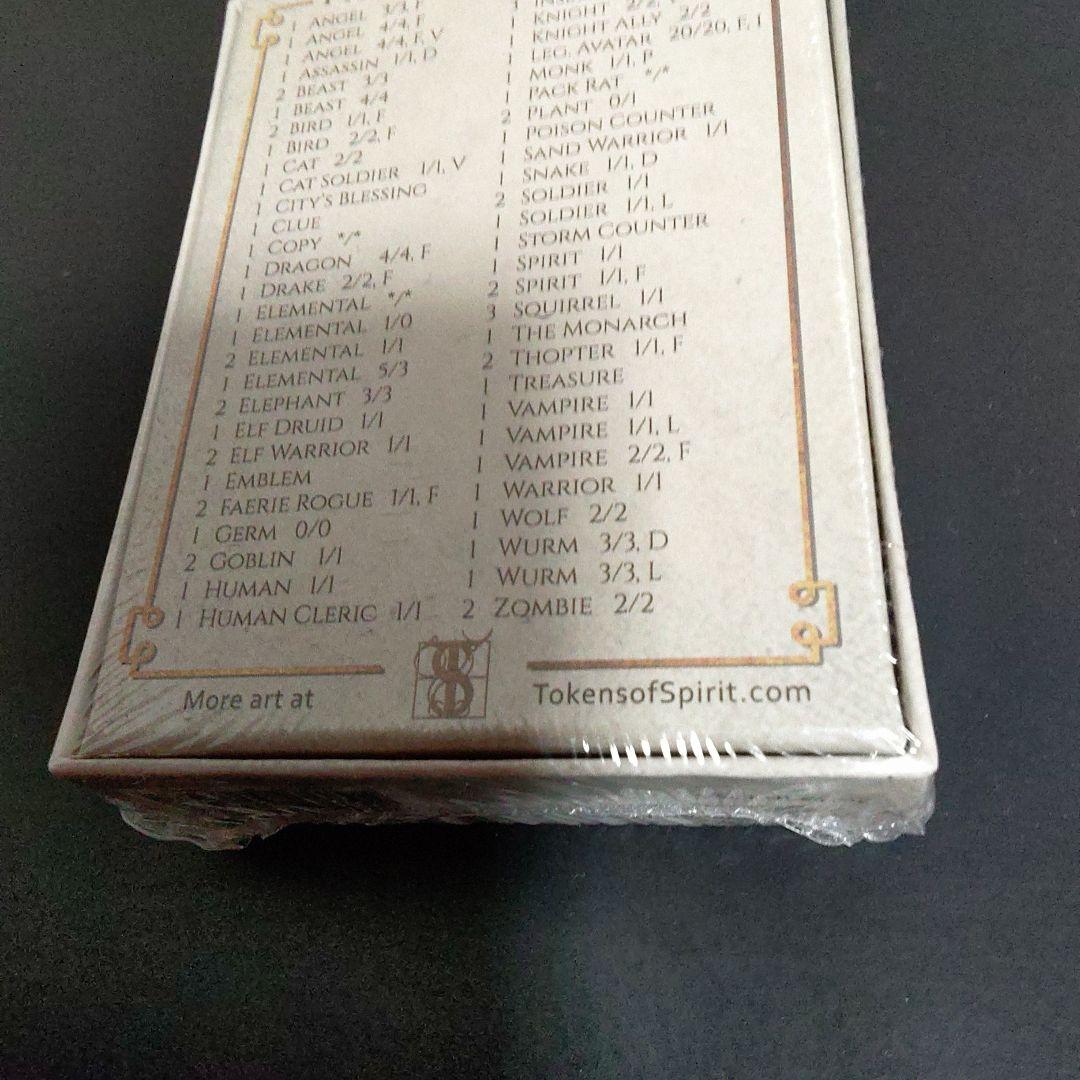 1 ANGEL 3/3, F
1 ANGEL 4/4, F
1 ANGEL 4/4, F, V
1 ASSASSIN 1/1, D
2 BEAST 3/3
1 BEAST 4/4
2 BIRD 1/1, F
1 BIRD 2/2, F
1 CAT 2/2
1 CAT SOLDIER 1/1, V
1 CITY'S BLESSING
1 CLUE
1 COPY */*
1 DRAGON 4/4, F
1 DRAKE 2/2, F
1 ELEMENTAL */*
1 ELEMENTAL 1/0
2 ELEMENTAL 1/1
1 ELEMENTAL 5/3
2 ELEPHANT 3/3
1 ELF DRUID 1/1
2 ELF WARRIOR 1/1
1 EMBLEM
2 FAERIE ROGUE 1/1, F
1 GERM 0/0
2 GOBLIN 1/1
1 HUMAN 1/1
1 HUMAN CLERIC 1/1
1 KNIGHT 2/2,
1 KNIGHT ALLY 2/2
1 LEG. AVATAR 20/20, F, I
1 MONK 1/1, P
1 PACK RAT */*
2 PLANT 0/1
1 POISON COUNTER
1 SAND WARRIOR 1/1
1 SNAKE 1/1, D
2 SOLDIER 1/1
1 SOLDIER 1/1, L
1 STORM COUNTER
1 SPIRIT 1/1
2 SPIRIT 1/1, F
3 SQUIRREL 1/1
1 THE MONARCH
2 THOPTER 1/1, F
1 TREASURE
1 VAMPIRE 1/1
1 VAMPIRE 1/1, L
1 VAMPIRE 2/2, F
1 WARRIOR 1/1
1 WOLF 2/2
1 WURM 3/3, D
1 WURM 3/3, L
2 ZOMBIE 2/2
More art at TokensofSpirit.com